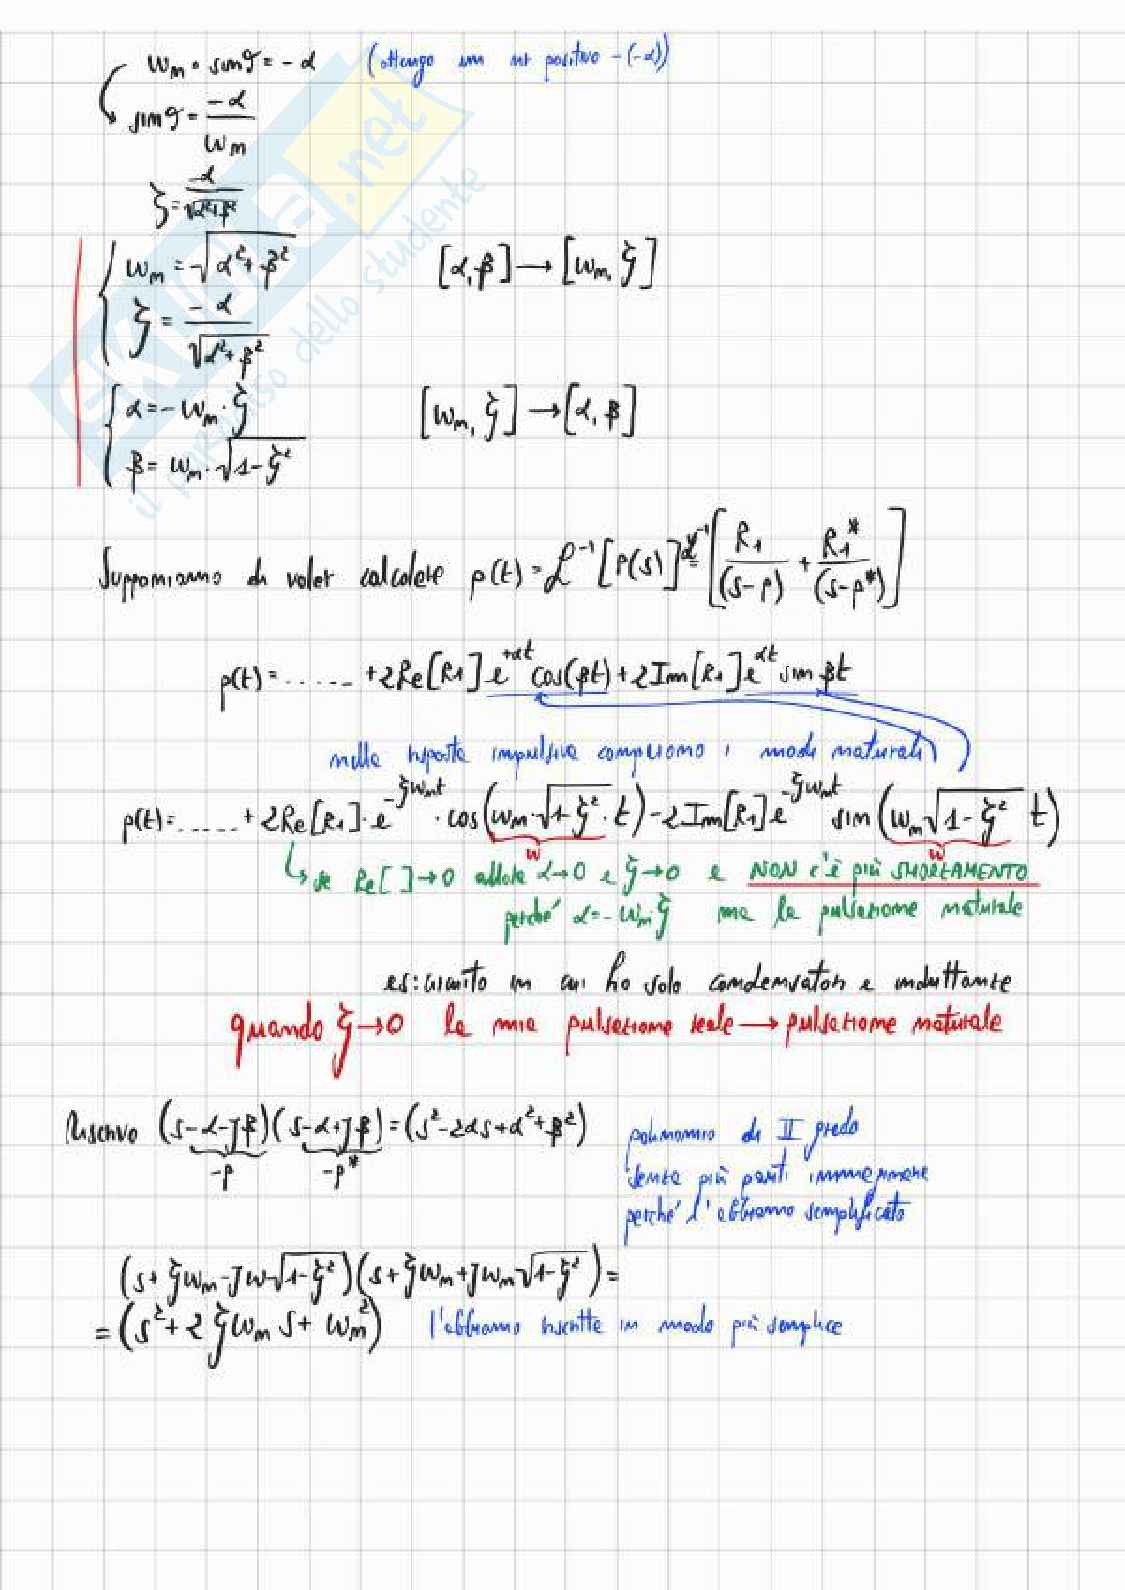 ωn · sinϑ = -α (ottengo un nr positivo -(-α))
sinϑ = -α/ωn
ζ = -α/√(α²+β²)
ωn = √(α²+β²) [α,β] → [ωn, ζ]
ζ = -α/√(α²+β²)
α = -ωn · ζ [ωn, ζ] → [α, β]
β = ωn · √(1-ζ²)
Supponiamo di voler calcolare p(t) = ℒ⁻¹[P(s)] = ℒ⁻¹[R1/(s-p) + R1*/(s-p*)]
p(t) = ...... + 2Re[R1] e^{+αt} cos(βt) + 2Im[R1] e^{αt} sin βt
nella risposta impulsiva compaiono i modi naturali
p(t) = ..... + 2Re[R1] · e^{-ζωnt} · cos(ωn · √(1-ζ²) · t) - 2Im[R1] e^{-ζωnt} sin(ωn √(1-ζ²) t)
ω ω
↳ se Re[ ] → 0 allora α → 0 e ζ → 0 e NON c'è più SMORZAMENTO
perché α = -ωn·ζ ma la pulsazione naturale
es: circuito in cui ho solo condensatori e induttanze
quando ζ → 0 la mia pulsazione reale → pulsazione naturale
Riscrivo (s-α-jβ)(s-α+jβ) = (s²-2αs+α²+β²)
-p -p*
polinomio di II grado
senza più parti immaginarie
perché l'abbiamo semplificato
(s + ζωn - jω√(1-ζ²))(s + ζωn + jωn√(1-ζ²)) =
= (s² + 2ζωn s + ωn²) l'abbiamo riscritta in modo più semplice
skuola.net
il paradiso dello studente